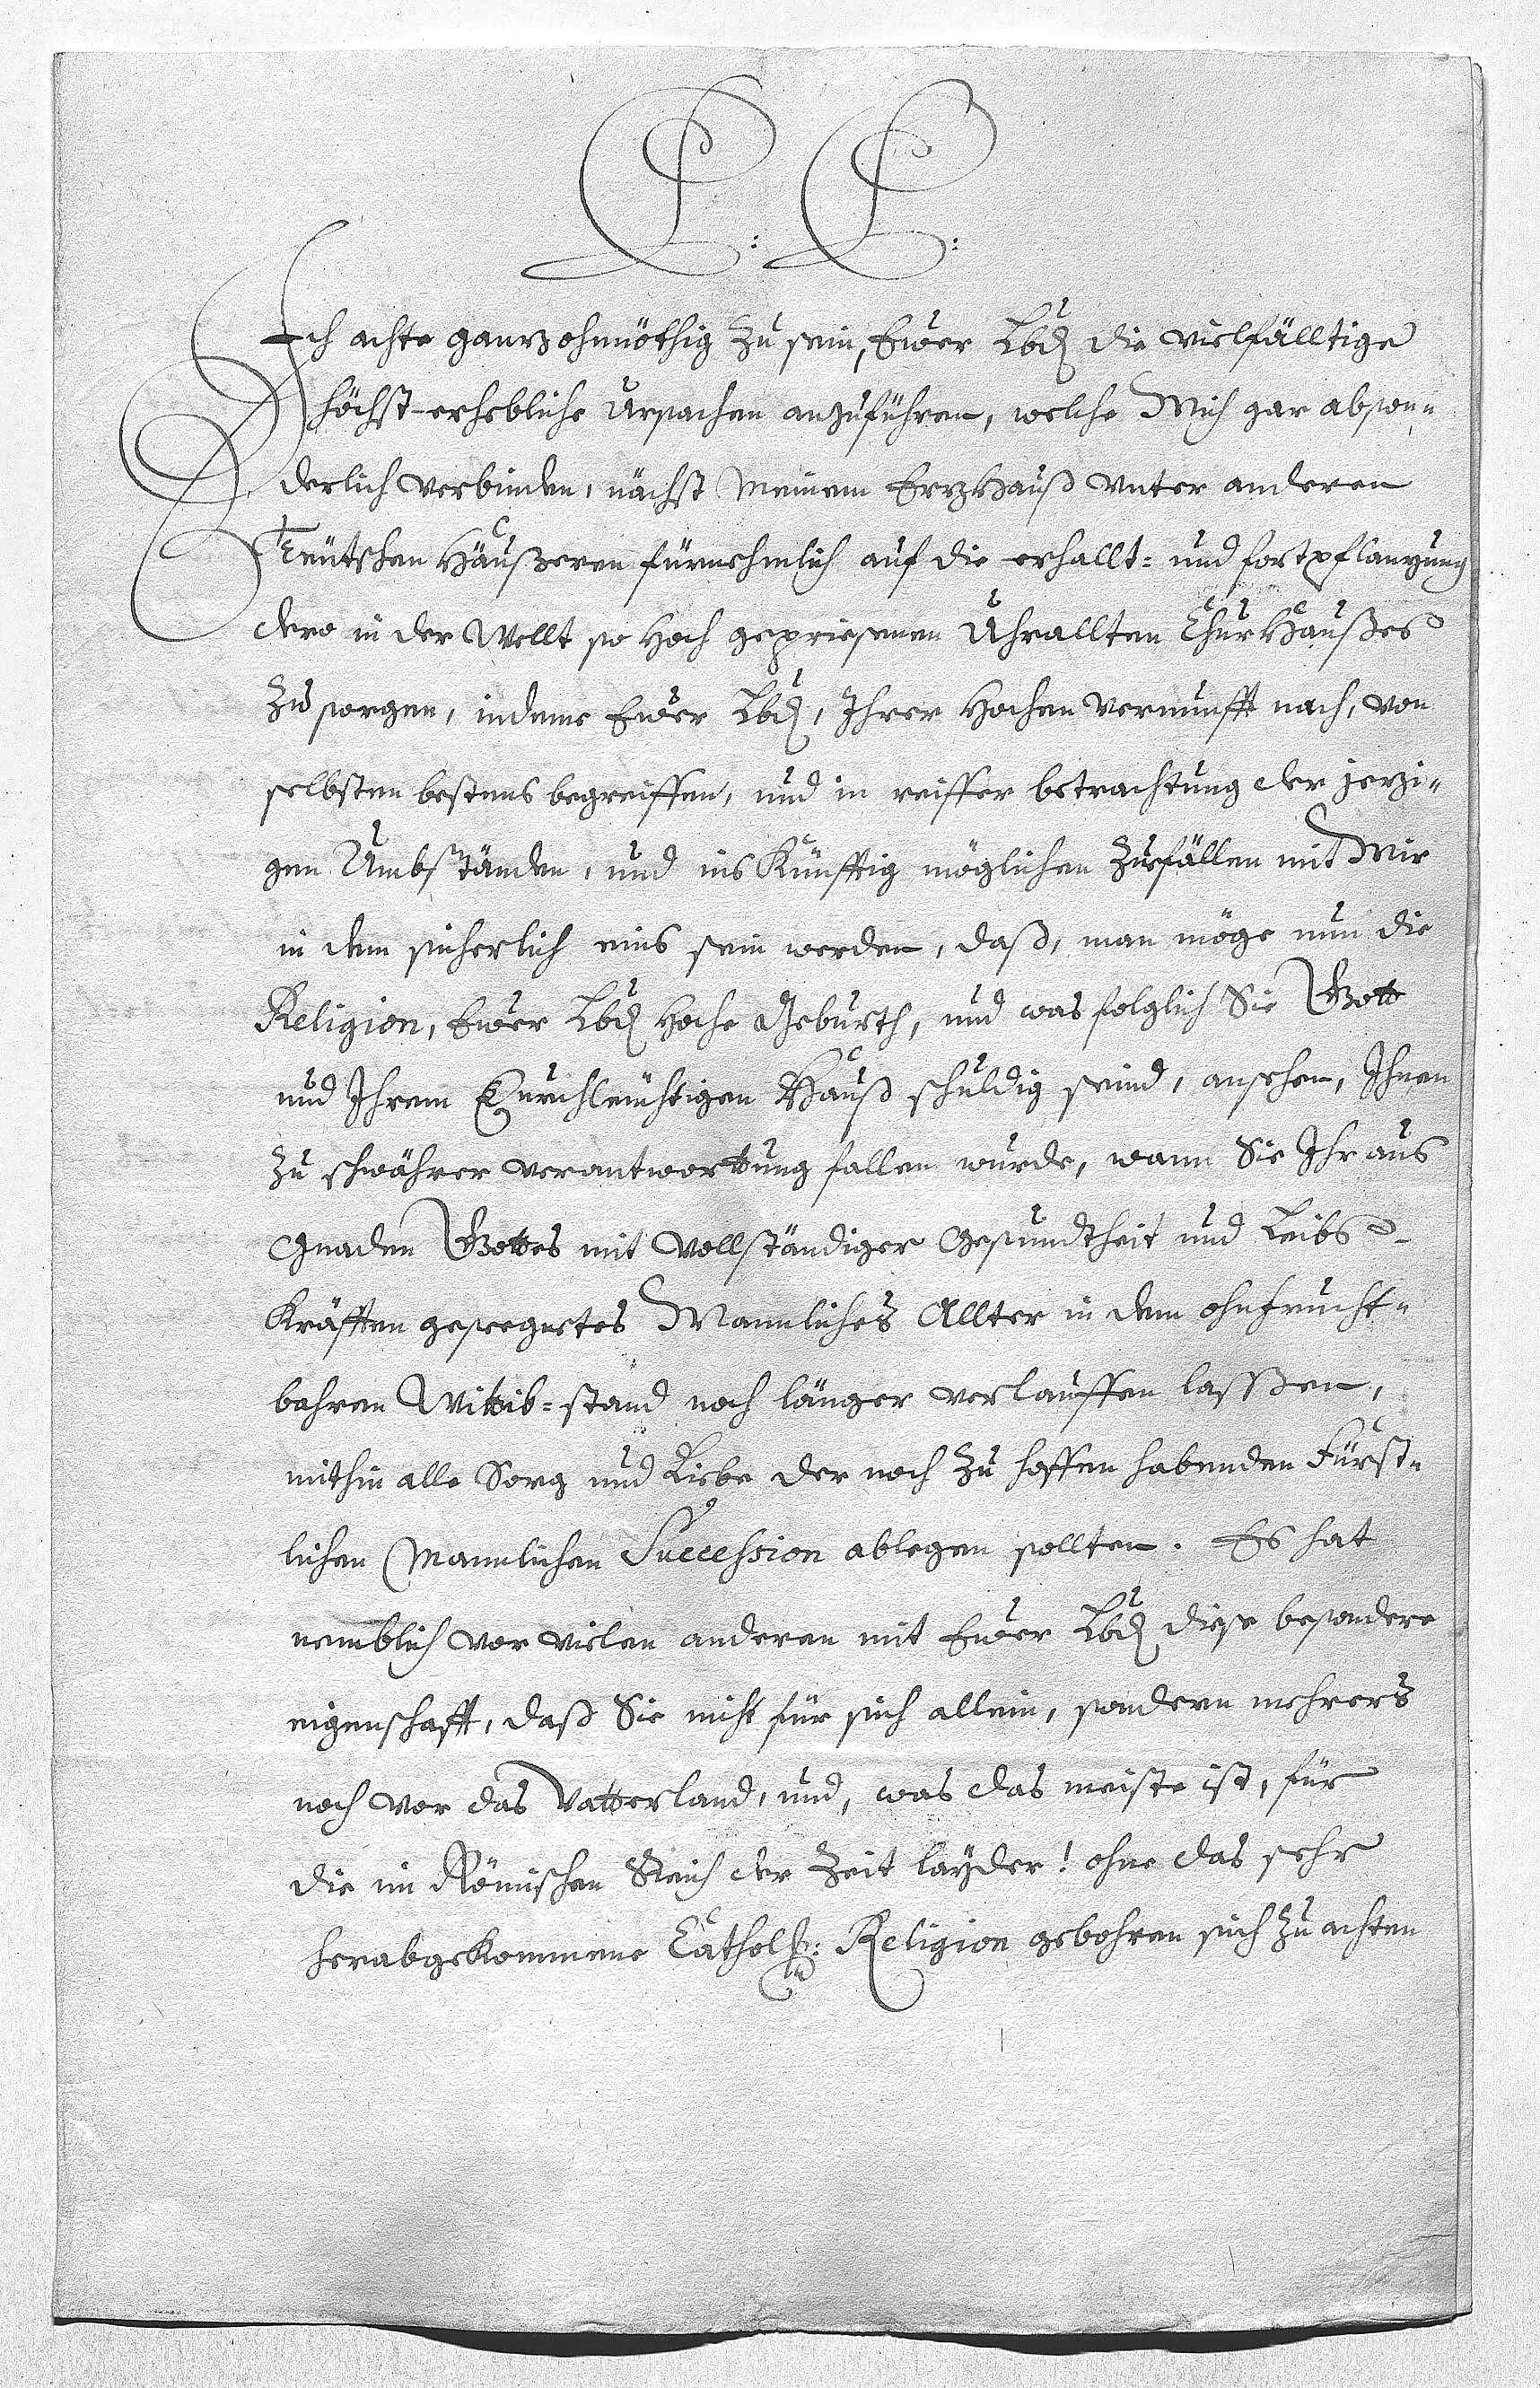 P: P:
Ich achte gantz ohnnöthig zu sein, Ewer Lbd die vielfälltige
höchst-erhebliche Ursachen anzuführen, welche Mich gar abson-
derlich verbinden, nächst Meinem ErtzHauß unter anderen
Teutschen Häußeren fürnehmlich auf die erhallt- und fortpflantzung
dero in der Wellt so hoch gepriesenen Uhrallten ChurHaußes
zu sorgen, indeme Ewer Lbd, Ihrer Hochen Vernunfft nach, von
selbsten bestens begreiffen, und in reiffer betrachtung der jetzi-
gen Umbständen, und ins Künfftig möglichen Zuefällen mit Mir
in dem sicherlich eins sein werden, daß, man möge nun die
Religion, Ewer Lbd Hoche Geburth, und was folglich Sie Gott
und Ihrem Durchleüchtigen Hauß schuldig seind, ansehen, Ihnen
zu schwährer verantworttung fallen wurde, wann Sie Ihr aus
Gnaden Gottes mit vollständiger Gesundtheit und Leibs-
Kräfften geseegnetes Mannliches Allter in dem ohnfrucht-
bahren Wittib-stand noch länger verlauffen lasßen,
mithin alle Sorg und Liebe der noch zu hoffen habenden Fürst-
lichen Mannlichen Succession ablegen sollten. Es hat
nemblich vor vielen anderen mit Ewer Lbd diese besondere
eigenschafft, daß Sie nicht für sich allein, sondern mehrers
noch vor das Vatterland, und, was das meiste ist, für
die im Römischen Reich der Zeit layder! ohne das sehr
herabgekommene Cathol: Religion gebohren sich zu achten